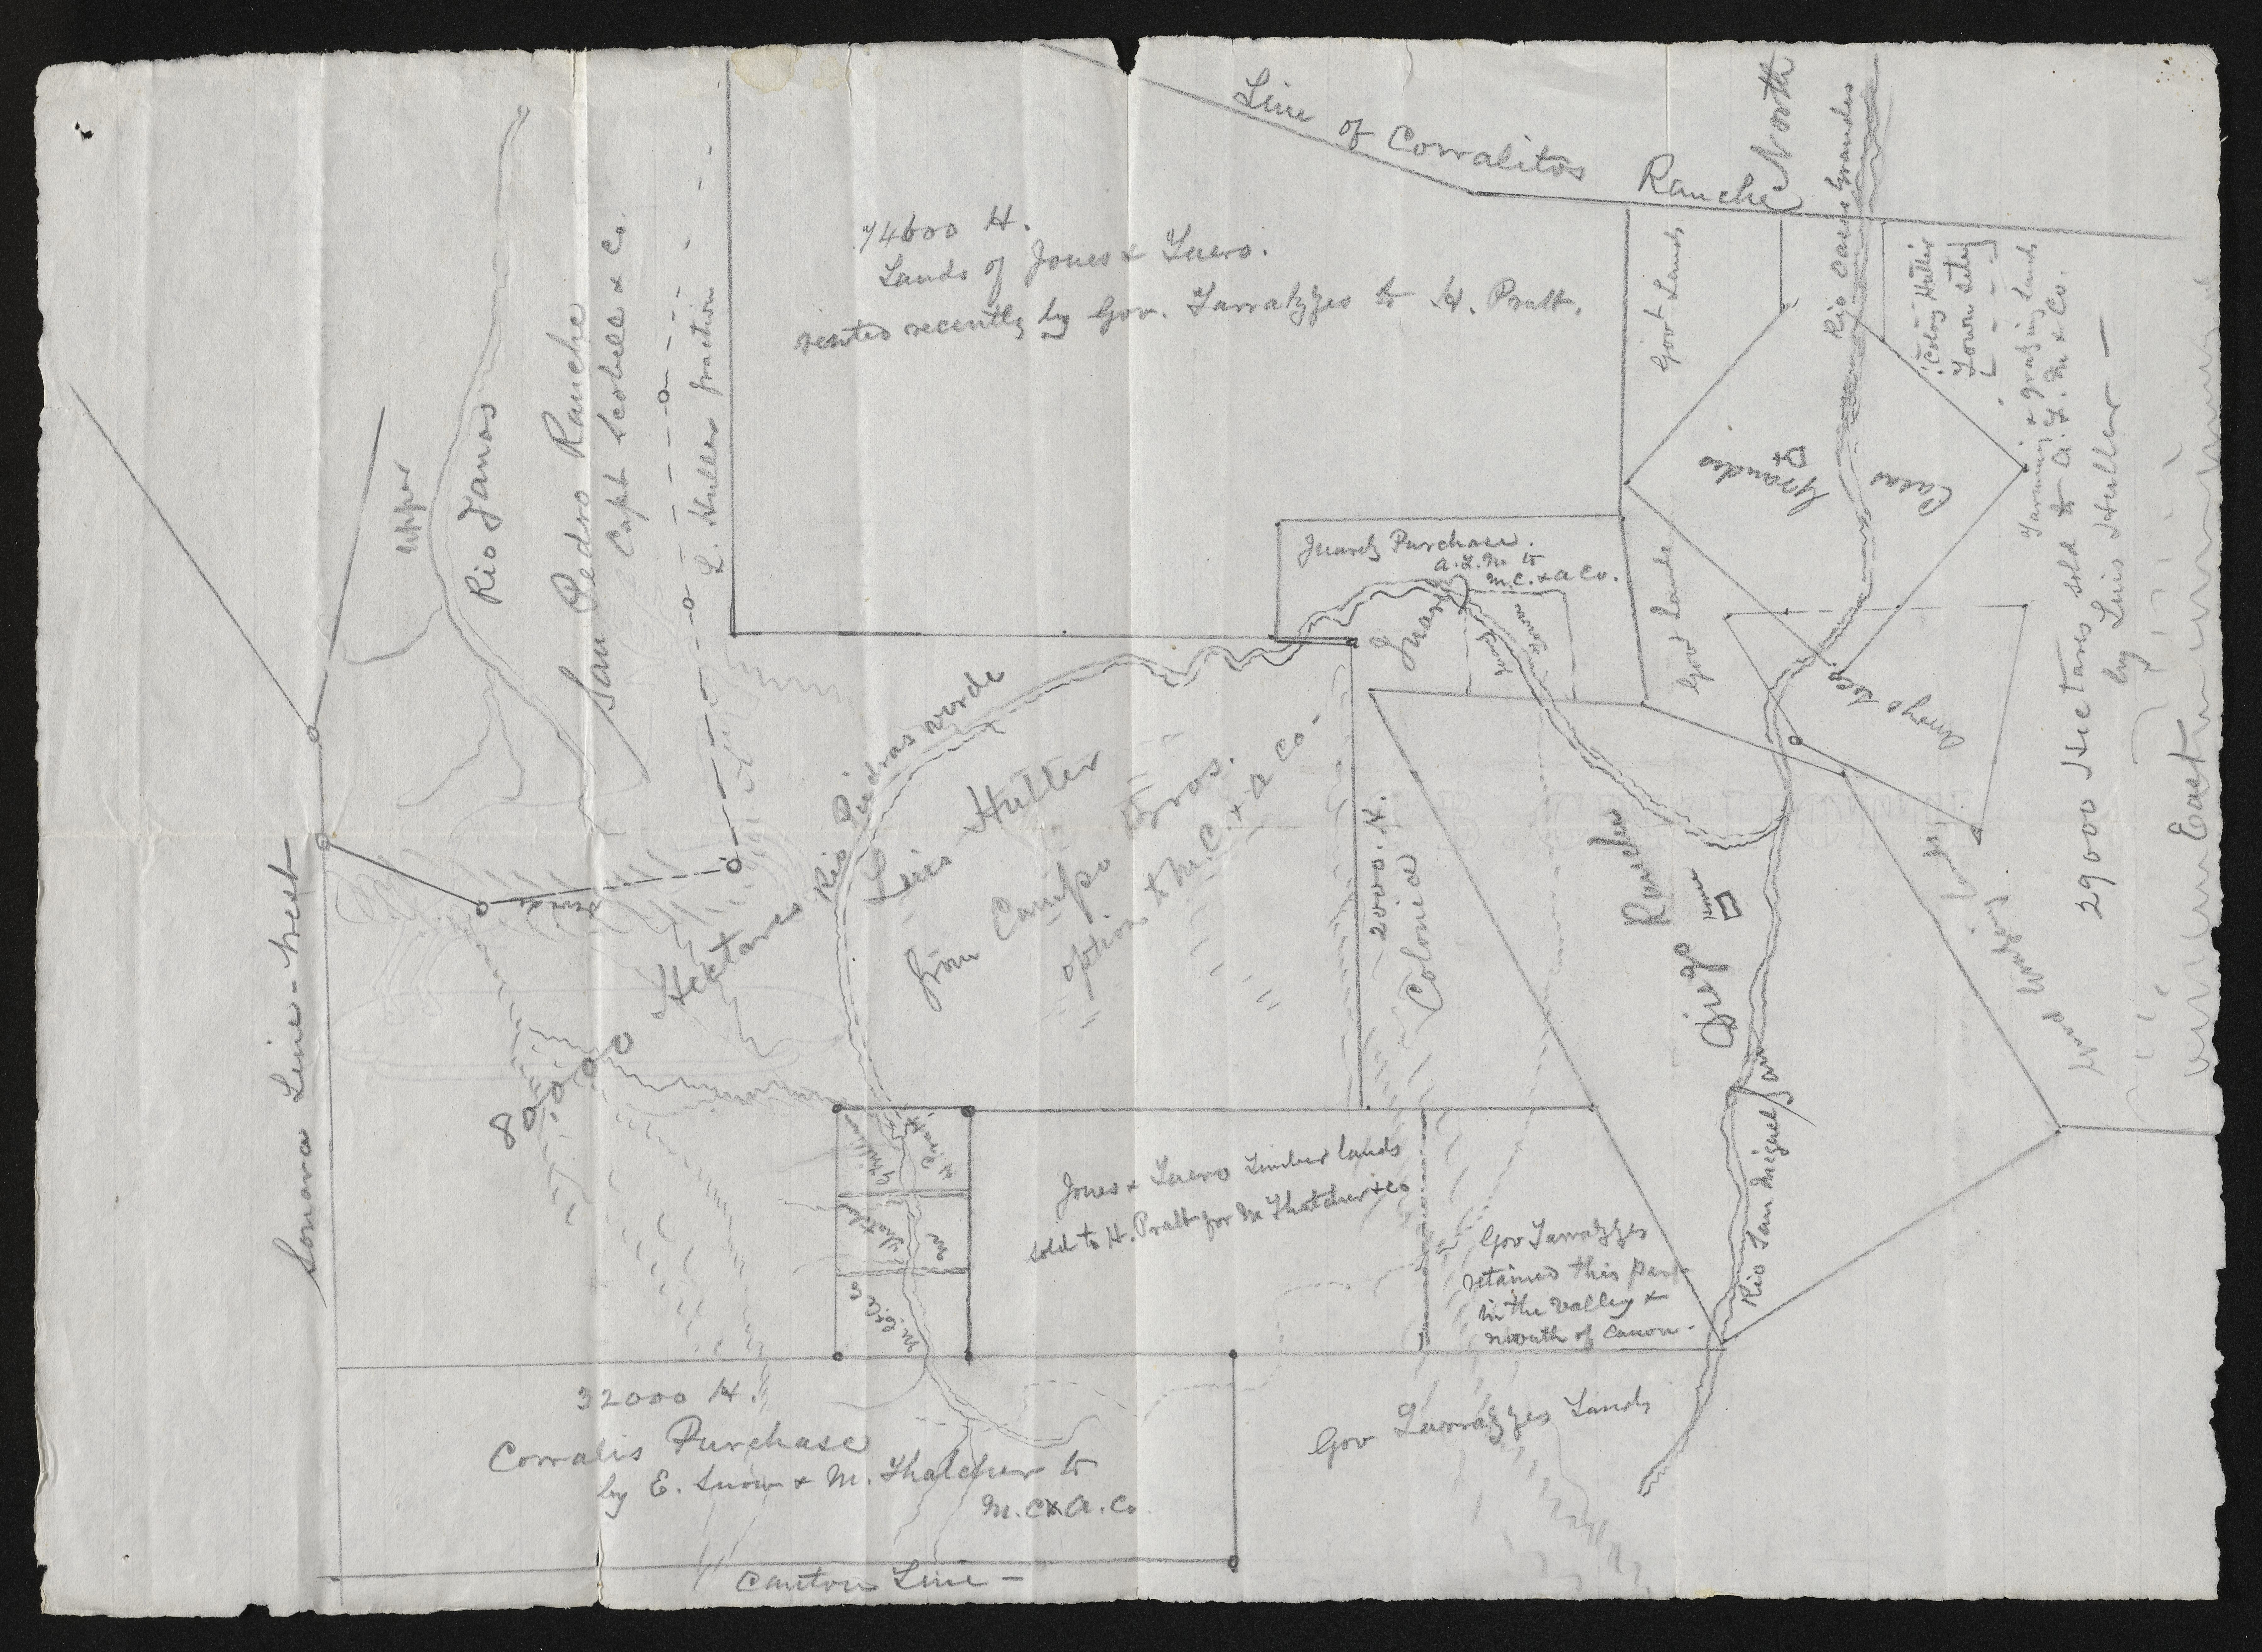 Line of Corralitos Ranche
North
Rio Casas Grandes
74600 H.
Lands of Jones &
rented recently by Gov. Tarrazzas to H. Pratt.
Gov Lands
Colony Huller
Town site
Farming & grazing Lands
29000 Hectares sold to A. F. M & Co.
by Luis Huller —
East
Casas
Grandes
Upper
Rio Janos
San Pedro Ranche
Capt Scobell & Co.
L. Huller fraction
Juarez Purchase.
A. F. M to
M. C. & A Co.
Juarez
Juarez
town
Gov Lands
Arroyo Seco
Rio Piedras verde
80.000 Hectares
Luis Huller
from Campo Bros.
option to M. C. & A Co -
2000. H.
Colonia
Ranche
House
Ojo
San
Rio San Miguel
and Lands
Sonora Line - West
H. Pratt
M
M. C. & A C
Jones & Timber lands
sold to H. Pratt for M Thatcher & Co
Gov Tarrazzes
retained this part
in the valley &
mouth of canon -
32000 H.
Corralis Purchase
by E. Snow & M. Thatcher to
M. C & A. Co
Gov Tarrazzes Lands
Canton Line —